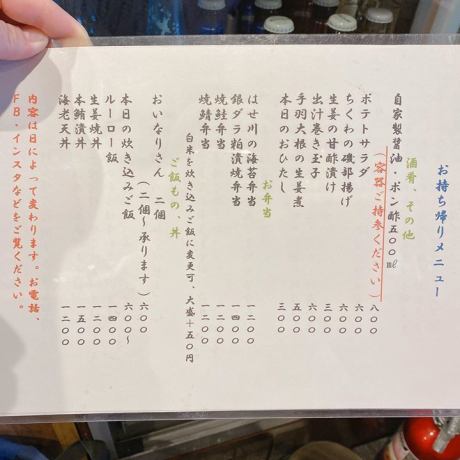 お持ち帰りメニュー
酒肴、その他
自家製醤油・ポン酢五〇〇㎖ 八〇〇
（容器ご持参ください）
ポテトサラダ 六〇〇
ちくわの磯部揚げ 六〇〇
生姜の甘酢漬け 三〇〇
出汁巻き玉子 六〇〇
手羽大根の生姜煮 五〇〇
本日のおひたし 三〇〇
お弁当
はせ川の海苔弁当 一二〇〇
銀ダラ粕漬焼弁当 一四〇〇
焼鮭弁当 一二〇〇
焼鯖弁当 一二〇〇
白米を炊き込みご飯に変更可、大盛＋五〇円
ご飯もの、丼
おいなりさん 二個 六〇〇
（二個〜承ります）
本日の炊き込みご飯 六〇〇〜
ルーロー飯 一四〇〇
生姜焼丼 一二〇〇
本鮪漬丼 一五〇〇
海老天丼 一二〇〇
内容は日によって変わります。お電話、
ＦＢ・インスタなどをご覧ください。